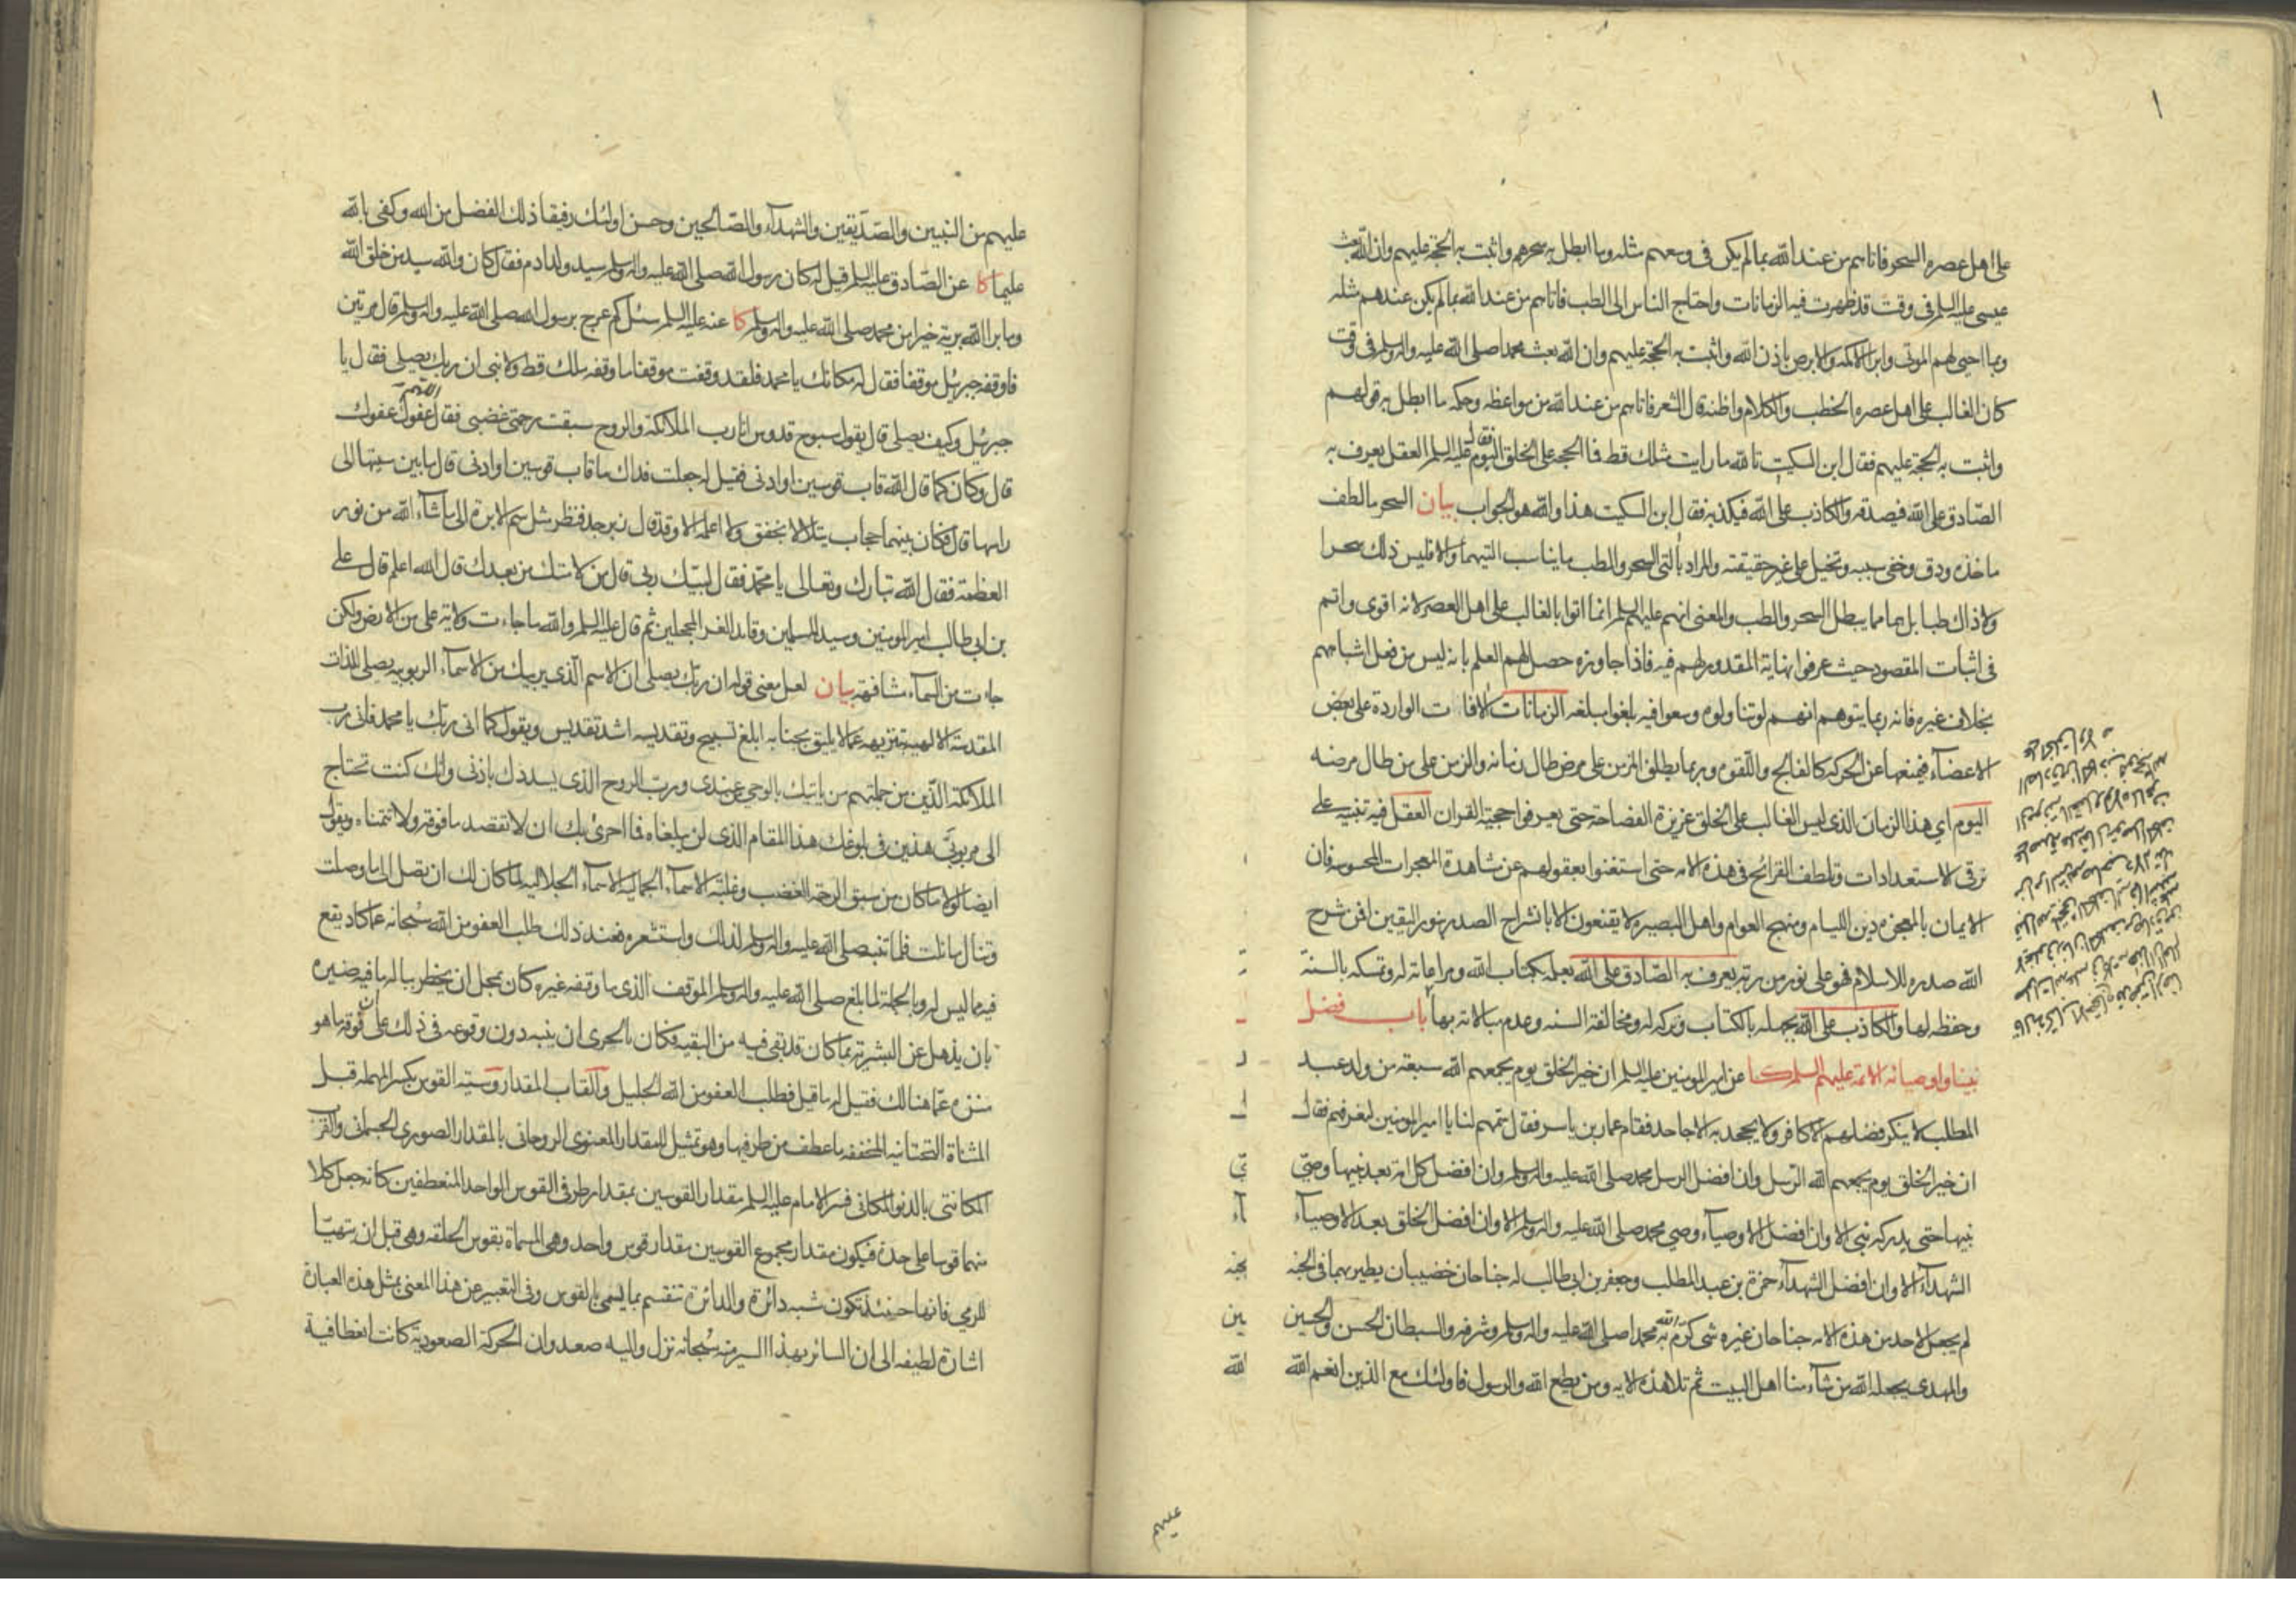 على اهل عصره السحر فاتاهم من عند الله بما لم يكن فى وسعهم مثله وما ابطل به سحرهم واثبت به الحجة عليهم وان الله بعث
عيسى عليه السلم فى وقت قد ظهرت فيه الزمانات واحتاج الناس الى الطب فاتاهم من عند الله بما لم يكن عندهم مثله
وبما احيى لهم الموتى وابرا الاكمه والابرص باذن الله واثبت به الحجة عليهم وان الله بعث محمدا صلى الله عليه واله وسلم فى وقت
كان الغالب على اهل عصره الخطب والكلام واظنه قال الشعر فاتاهم من عند الله من مواعظه وحكمه ما ابطل به قولهم
واثبت به الحجة عليهم فقال ابن السكيت تالله ما رايت مثلك قط فما الحجة على الخلق اليوم فقال عليه السلم العقل يعرف به
الصادق على الله فيصدقه والكاذب على الله فيكذبه فقال ابن السكيت هذا والله هو الجواب بيان السحر ما لطف
ماخذه ودق وخفى سببه وتخيل على غير حقيقته والمراد بالتى السحر والطب ما يناسب التيهما والا فليس ذلك سحرا
ولا ذاك طبا بل هما مما يبطل السحر والطب والمعنى انهم عليهم السلم انما اتوا بالغالب على اهل العصر لانه اقوى واتم
فى اثبات المقصود حيث عرفوا نهاية المقدور لهم فيه فاذا جاوزه حصل لهم العلم بانه ليس من فعل اشباههم
بخلاف غيره فانه ربما يتوهم انهم لو تناولوه وسعوا فيه بلغوا مبلغه الزمانات الافات الواردة على بعض
الاعضاء فيمنعها عن الحركة كالفالج واللقوه وربما يطلق المزمن على مرض طال زمانه والزمن على من طال مرضه
اليوم اي هذا الزمان الذى ليس الغالب على الخلق غريزة الفصاحة حتى يعرفوا حجية القران العقل فيه تنبيه على
ترقى الاستعدادات وتلطف القرائح فى هذه الامه حتى استغنوا بعقولهم عن مشاهدة المعجزات المحسوسه فان
الايمان بالمعجزه دين الليام ومنهج العوام واهل البصيره لا يقنعون الا بانشراح الصدر بنور اليقين افمن شرح
الله صدره للاسلام فهو على نور من ربه يعرف به الصادق على الله بعلمه بكتاب الله ومراعاته له وتمسكه بالسنة
وحفظه لها والكاذب على الله بجهله بالكتاب وتركه له ومخالفة السنه وعدم مبالاته بها باب فضل
نبينا واوصيائه الائمة عليهم السلم كا عن امير المومنين عليه السلم ان خير الخلق يوم يجمعهم الله سبعة من ولد عبد
المطلب لا ينكر فضلهم الا كافر ولا يجحد به الا جاحد فقام عمار بن ياسر فقال سمهم لنا يا امير المومنين لنعرفهم فقال
ان خير الخلق يوم يجمعهم الله الرسل وان افضل الرسل محمد صلى الله عليه واله وسلم وان افضل كل امة بعد نبيها وصى
نبيها حتى يدركه نبى الا وان افضل الاوصياء وصي محمد صلى الله عليه واله وسلم الا وان افضل الخلق بعد الاوصياء
الشهداء الا وان افضل الشهداء حمزة بن عبد المطلب وجعفر بن ابى طالب له جناحان خضيبان يطير بهما فى الجنه
لم يجعل لاحد من هذه الامه جناحان غيره شى كرم الله به محمدا صلى الله عليه واله وسلم وشرفه والسبطان الحسن والحسين
والمهدى يجعله الله من شاء منا اهل البيت ثم تلا هذه الايه ومن يطع الله والرسول فاولئك مع الذين انعم الله
عليهم
عليهم من النبيين والصديقين والشهداء والصالحين وحسن اولئك رفيقا ذلك الفضل من الله وكفى بالله
عليما كا عن الصادق عليه السلم قيل له كان رسول الله صلى الله عليه واله وسلم سيد ولد ادم فقال كان والله سيد من خلق الله
وما برا الله برية خيرا من محمد صلى الله عليه واله وسلم كا عنه عليه السلم سئل كم عرج برسول الله صلى الله عليه واله وسلم قال مرتين
فاوقفه جبرئيل موقفا فقال له مكانك يا محمد فلقد وقفت موقفا ما وقفه ملك قط ولا نبى ان ربك يصلى فقال يا
جبرئيل وكيف يصلى قال يقول سبوح قدوس انا رب الملائكة والروح سبقت رحمتى غضبى فقال اللهم عفوك عفوك
قال وكان كما قال الله قاب قوسين او ادنى فقيل له جعلت فداك ما قاب قوسين او ادنى قال ما بين سيتها الى
راسها قال فكان بينهما حجاب يتلالا بخفق ولا اعلمه الا وقد قال زبرجد فنظر مثل سم الابرة الى ما شاء الله من نور
العظمة فقال الله تبارك وتعالى يا محمد فقال لبيك ربى قال من لامتك من بعدك قال الله اعلم قال على
بن ابى طالب امير المومنين وسيد المسلمين وقائد الغر المحجلين ثم قال عليه السلم والله ما جاءت ولاية على من الارض ولكن
جاءت من السماء مشافهة بيان لعل معنى قوله ان ربك يصلى ان الاسم الذى يربيك من الاسماء الربوبيه يصلى للذات
المقدسة الالهية بتنزيهه عما لا يليق بجنابه ابلغ تسبيح وتقديسه اشد تقديس ويقول كما انى ربك يا محمد فانى رب
الملائكة الذين من جملتهم من ياتيك بالوحى من عندى ورب الروح الذى يسددك باذنى وانك كنت تحتاج
الى مربوبى هذين فى بلوغك هذا المقام الذى لن يبلغاه فما احرى بك ان لا تقصد ما فوقه ولا تتمناه ويقول
ايضا لولا ما كان من سبق الرحمة الغضب وغلبة الاسماء الجماليه الاسماء الجلاليه لما كان لك ان تصل الى ما وصلت
وتنال ما نلت فلما تنبه صلى الله عليه واله وسلم لذلك واستشعره فعند ذلك طلب العفو من الله سبحانه عما كاد يقع
فيه مما ليس له وبالجملة لما بلغ صلى الله عليه واله وسلم الموقف الذى ما وقفه غيره كان بمحل ان يخطر بباله ما فيه ضيره
بان يذهل عن البشرية بما كان قد بقى فيه من البقيه فكان بالحرى ان ينبه دون وقوعه فى ذلك على ان فوقه ما هو
منزه عما هنالك فقيل له ما قيل فطلب العفو من الله الجليل والقاب المقدار وسية القوس بكسر المهمله قبل
المثناة التحتانيه المخففه ما عطف من طرفيها وهو تمثيل للمقدار المعنوى الروحانى بالمقدار الصورى الجسمانى والقرب
المكانتى بالدنو المكانى فسر الامام عليه السلم مقدار القوسين بمقدار طرفى القوس الواحد المنعطفين كانه جعل كلا
منهما قوسا على حدة فيكون مقدار مجموع القوسين مقدار قوس واحد وهى المسماة بقوس الحلقه وهى قبل ان يتهيا
للرمي فانها حينئذ تكون شبه دائرة والدائرة تنقسم بما يسمى بالقوس وفى التعبير عن هذا المعنى بمثل هذه العبارة
اشارة لطيفه الى ان السائر بهذا السير منه سبحانه نزل واليه صعد وان الحركة الصعودية كانت انعطافية